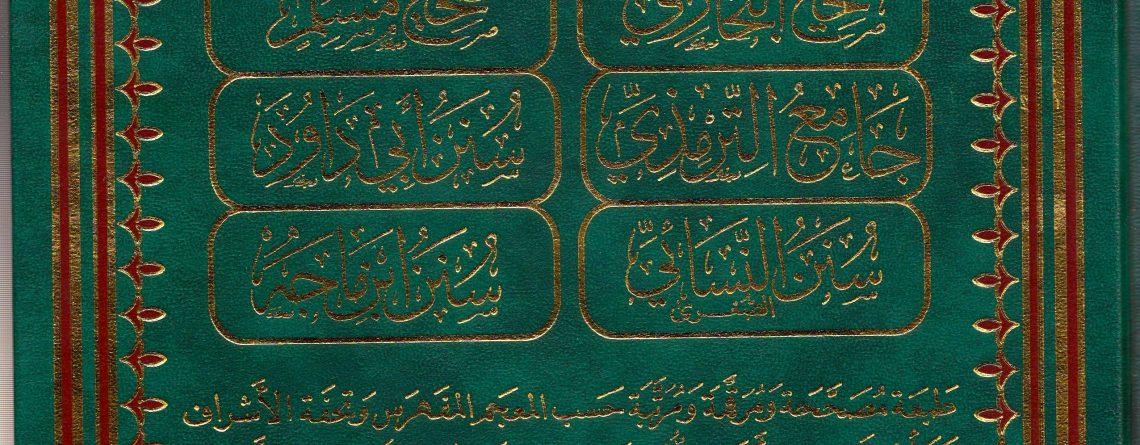 صحيح البخاري صحيح مسلم
جَامِعُ التِّرمِذِيِّ سُنَنُ أَبِي دَاوُدَ
سُنَنُ النَّسَائِيِّ سُنَنُ ابْنِ مَاجَهْ
الصّغرى
طَبعَة مُصَحَّحَة وَمُرقَّمَة وَمُرَتَّبَة حَسب المعجم المفهرس وَتحفة الأشراف